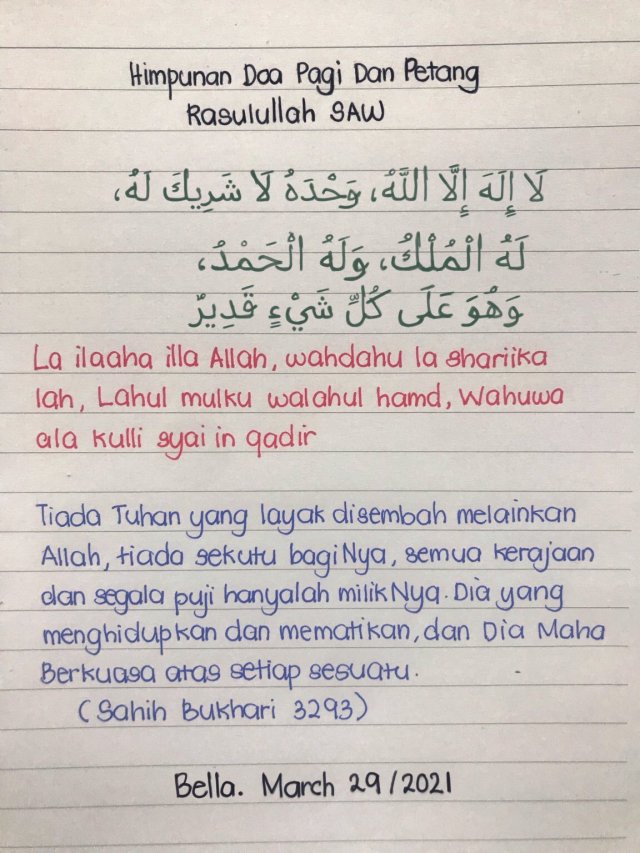 Himpunan Doa Pagi Dan Petang
Rasulullah SAW
لَا إِلَهَ إِلَّا اللَّهُ، وَحْدَهُ لَا شَرِيكَ لَهُ،
لَهُ الْمُلْكُ، وَلَهُ الْحَمْدُ،
وَهُوَ عَلَى كُلِّ شَيْءٍ قَدِيرٌ
La ilaaha illa Allah, wahdahu la shariika
lah, Lahul mulku walahul hamd, Wahuwa
ala kulli syai in qadir
Tiada Tuhan yang layak disembah melainkan
Allah, tiada sekutu bagiNya, semua kerajaan
dan segala puji hanyalah milikNya. Dia yang
menghidupkan dan mematikan, dan Dia Maha
Berkuasa atas setiap sesuatu.
(Sahih Bukhari 3293)
Bella. March 29/2021